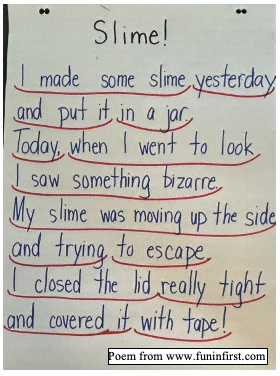 Slime!
I made some slime yesterday
and put it in a jar.
Today, when I went to look
I saw something bizarre.
My slime was moving up the side
and trying to escape.
I closed the lid really tight
and covered it with tape!
Poem from www.funinfirst.com